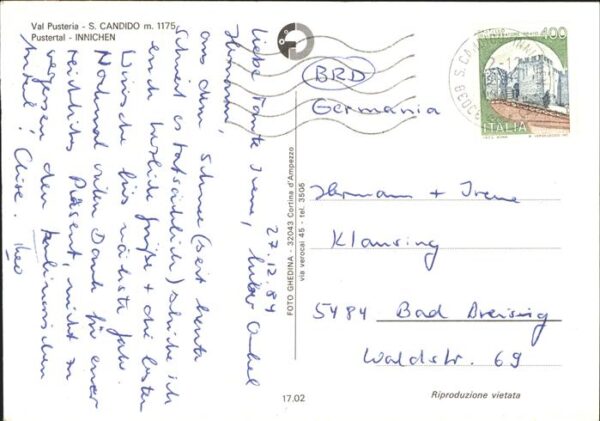 Val Pusteria - S. CANDIDO m. 1175
Pustertal - INNICHEN
27.12.84
Liebe Tante Irene, lieber Onkel
Hermann,
aus dem Schnee (seit heute
schneit es tatsächlich) schicke ich
euch herzliche Grüße + die besten
Wünsche fürs nächste Jahr.
Nochmal vielen Dank für euer
reichliches Präsent, nicht zu
vergessen den kulinarischen
Anteil! Theo
FOTO GHEDINA - 32043 Cortina d'Ampezzo
via verocai 45 - tel. 3506
400
ITALIA
S. CANDIDO
BRD
Germania
Hermann + Irene
Klausing
5484 Bad Breisig
Waldstr. 69
17.02
Riproduzione vietata